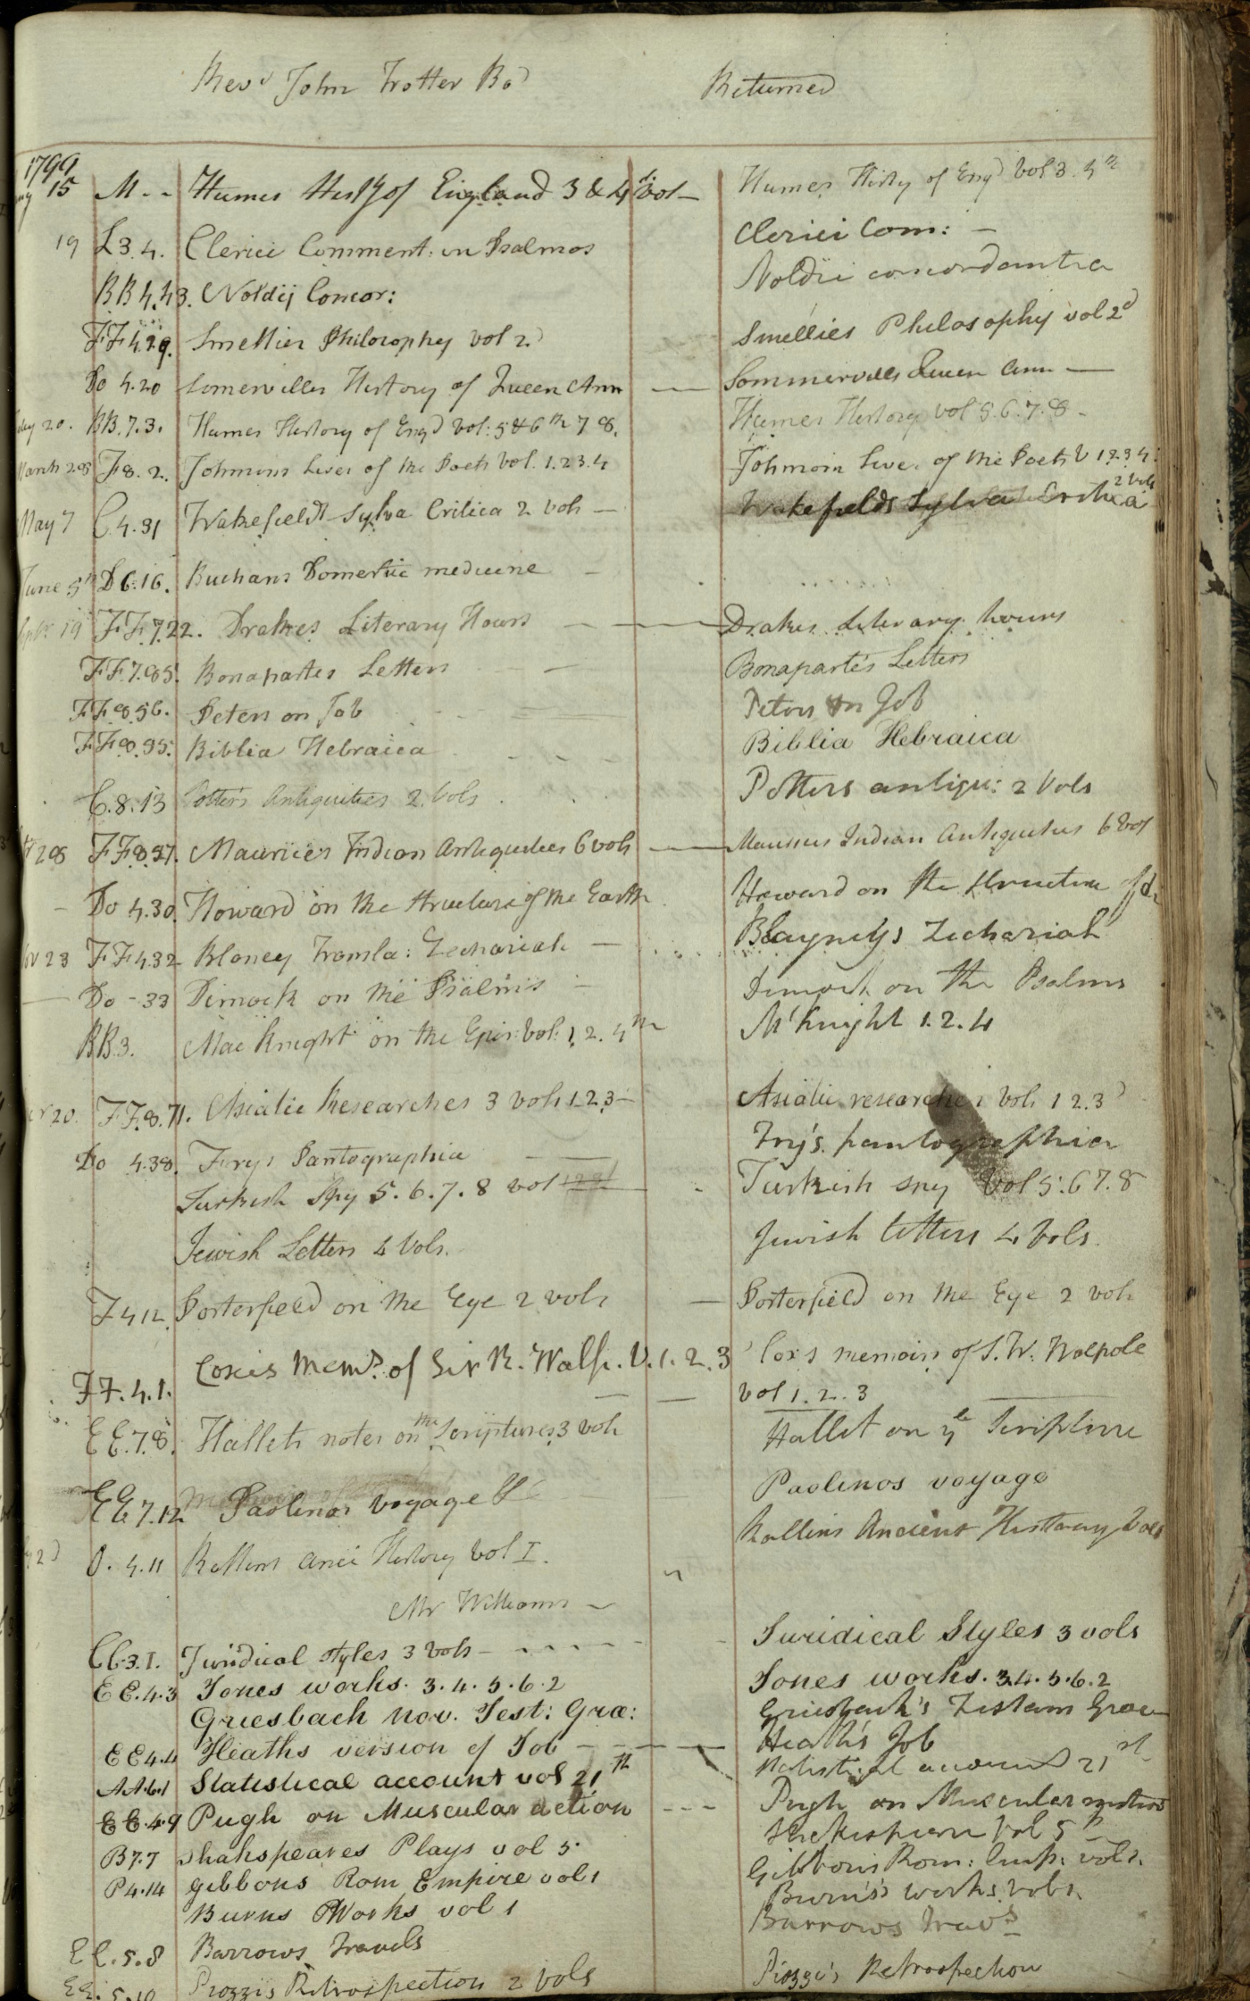 Revd John Trotter Bod Returned
1799
15 M - - Humes Histy of England 3 & 4 vol — Humes Histy of Engd Vol 3. 4th
19 L3.4. Clerici Comment: in Psalmos Clerici Com: —
BB4.43. Noldij Concor: Noldii concordantia
FF4.29. Smellies Philosophy vol 2d Smellies Philosophy vol 2d
Do 4.20 Somervilles History of Queen Ann — Sommervills Queen Ann —
20. BB.7.3. Humes History of Engd Vol: 5 & 6th 7 8. Humes History vol 5.6.7.8 -
March 28 F8.2. Johnsons Lives of the Poets Vol. 1.2 3.4 Johnsons Lives of the Poets V 1 2 3 4
May 7 C4.31 Wakefields Sylva Critica 2 vols — Wakefields Sylva Critica 2 Vols
June 5th D6.16. Buchans Domestic medicine —
19 FF7.22. Drakes Literary Hours — Drakes Literary hours
FF7.85. Bonapartes Letters — Bonaparte's Letters
FF8.56. Peters on Job Peters on Job
FF8.95. Biblia Hebraica Biblia Hebraica
C.8.13 Potters Antiquities 2 Vols. Potters antiqu: 2 Vols
28 FF8.37. Maurices Indian Antiquities 6 vols — Maurices Indian Antiquities 6 Vol
- Do 4.30. Howard on the Structure of the Earth Howard on the Structure of do
23 FF4.32 Blaney Transla: Zechariah — Blayneys Zechariah
— Do - 33 Dimock on the Psalms — Dimock on the Psalms
BB3. Mac Knight on the Epis: Vol: 1. 2. 4th McKnight 1. 2. 4
20. FF.8.71. Asiatic Researches 3 vols 1 2 3 — Asiatic researches Vols 1 2. 3d
Do 4.38. Frys Pantographia — Fry's pantographia
Turkish Spy 5. 6. 7. 8 vol - Turkish spy Vol 5. 6 7. 8
Jewish Letters 4 Vols. Jewish letters 4 Vols.
F4 12. Porterfield on the Eye 2 vols — Porterfield on the Eye 2 vols
Coxes Mems. of Sir R. Walp. V. 1. 2. 3 Cox's memoirs of S. W. Walpole
FF.4.1. — — vol 1. 2. 3
EE.7.8. Hallets notes on the Scriptures 3 vols Hallet on ye Scripture
EE 7.12 Paolinos voyage Paolinos voyage
2d O. 4.11 Rollins anci History Vol I. Rollins Ancient History Vol
Mr Williams —
CC3.1. Juridical styles 3 vols - - - - - Juridical Styles 3 vols
EE.4.3 Jones works. 3. 4. 5. 6. 2 Jones works. 3. 4. 5. 6. 2
Griesbach Nov. Test: Græ: Griesbach's Testam Græ
EE4.4 Heaths version of Job - - - — Heath's Job
AA6.1 Statistical account vol 21th Statistical account 21st
EE.4.9 Pugh on Muscular action - - - Pugh on Muscular motion
B7.7 Shakspeares Plays vol 5 Shakespeare Vol 5th
P4.14 Gibbons Rom Empire vol 1 Gibbons Rom: Emp. vol 1.
Burns Works vol 1 Burn's works, vol 1.
EE.5.8 Barrows Travels Barrows Travs
EE.5.10 Piozzis Retrospection 2 Vols Piozzi's Retrospection